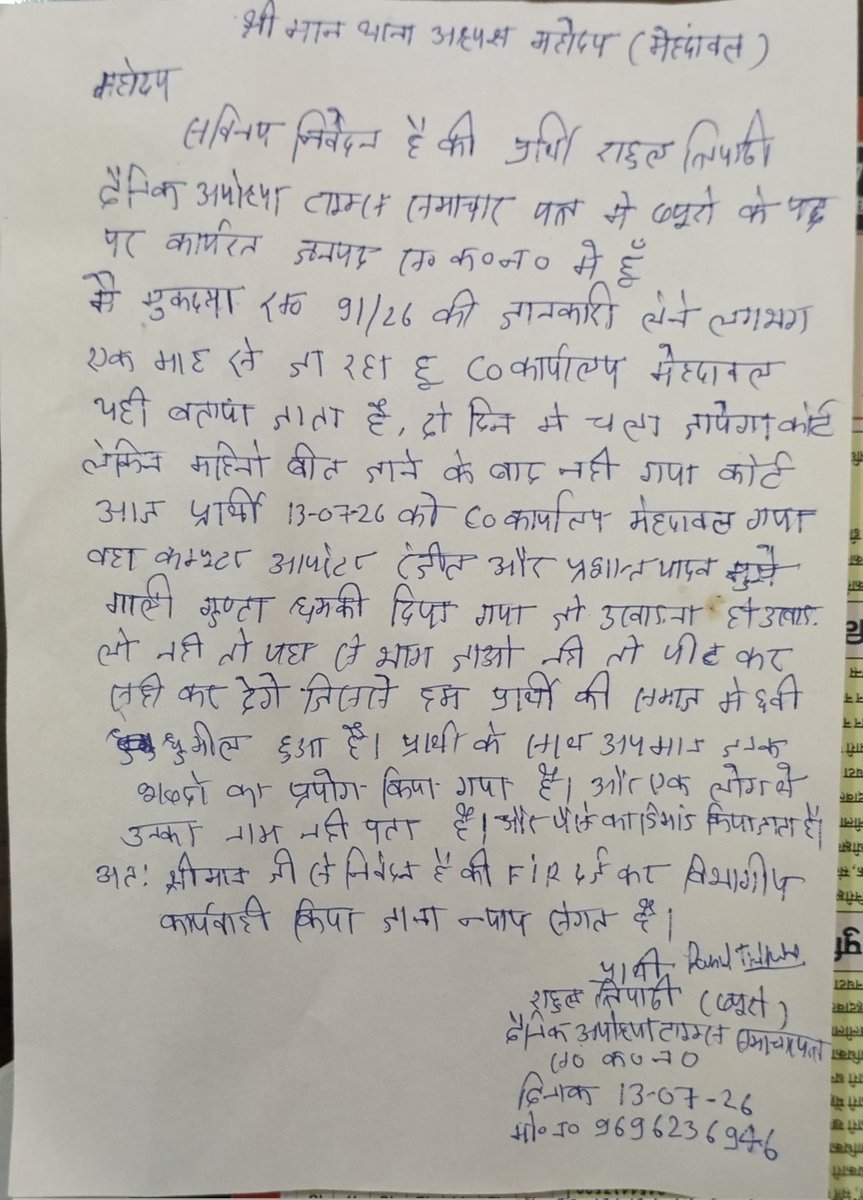 श्री मान थाना अध्यक्ष महोदय (मेहदावल)
महोदय
सविनय निवेदन है की प्रार्थी राहुल त्रिपाठी
दैनिक अयोध्या टाइम्स समाचार पत्र मे व्यूरो के पद
पर कार्यरत जनपद स० क०न० मे हूँ
मै मुकदमा स० 91/26 की जानकारी लेने लगभग
एक माह से जा रहा हू CO कार्यालय मेहदावल
यही बताया जाता है, दो दिन मे चला जायेगा कोर्ट
लेकिन महिनो बीत जाने के बाद नही गया कोर्ट
आज प्रार्थी 13-07-26 को CO कार्यालय मेहदावल गया
वहा कम्प्यूटर आपरेटर रंजीत और प्रशान्त यादव
गाली गुप्ता धमकी दिया गया जो उखाडना हो उखाड
लो नही तो यहा से भाग जाओ नही तो पीट कर
सही कर देगे जिससे हम प्रार्थी की समाज मे छवी
धुमील हुआ है। प्रार्थी के साथ अपमान जनक
शब्दो का प्रयोग किया गया है। और एक लोग थे
उनका नाम नही पता है। और पैसे का डिमांड किया जाता है।
अतः श्रीमान जी से निवेदन है की FIR दर्ज कर विभागीय
कार्यवाही किया जाना न्याय संगत है।
प्रार्थी
राहुल त्रिपाठी (व्यूरो)
दैनिक अयोध्या टाइम्स समाचार पत्र
स० क० न०
दिनाक 13-07-26
मो० न० 9696236946